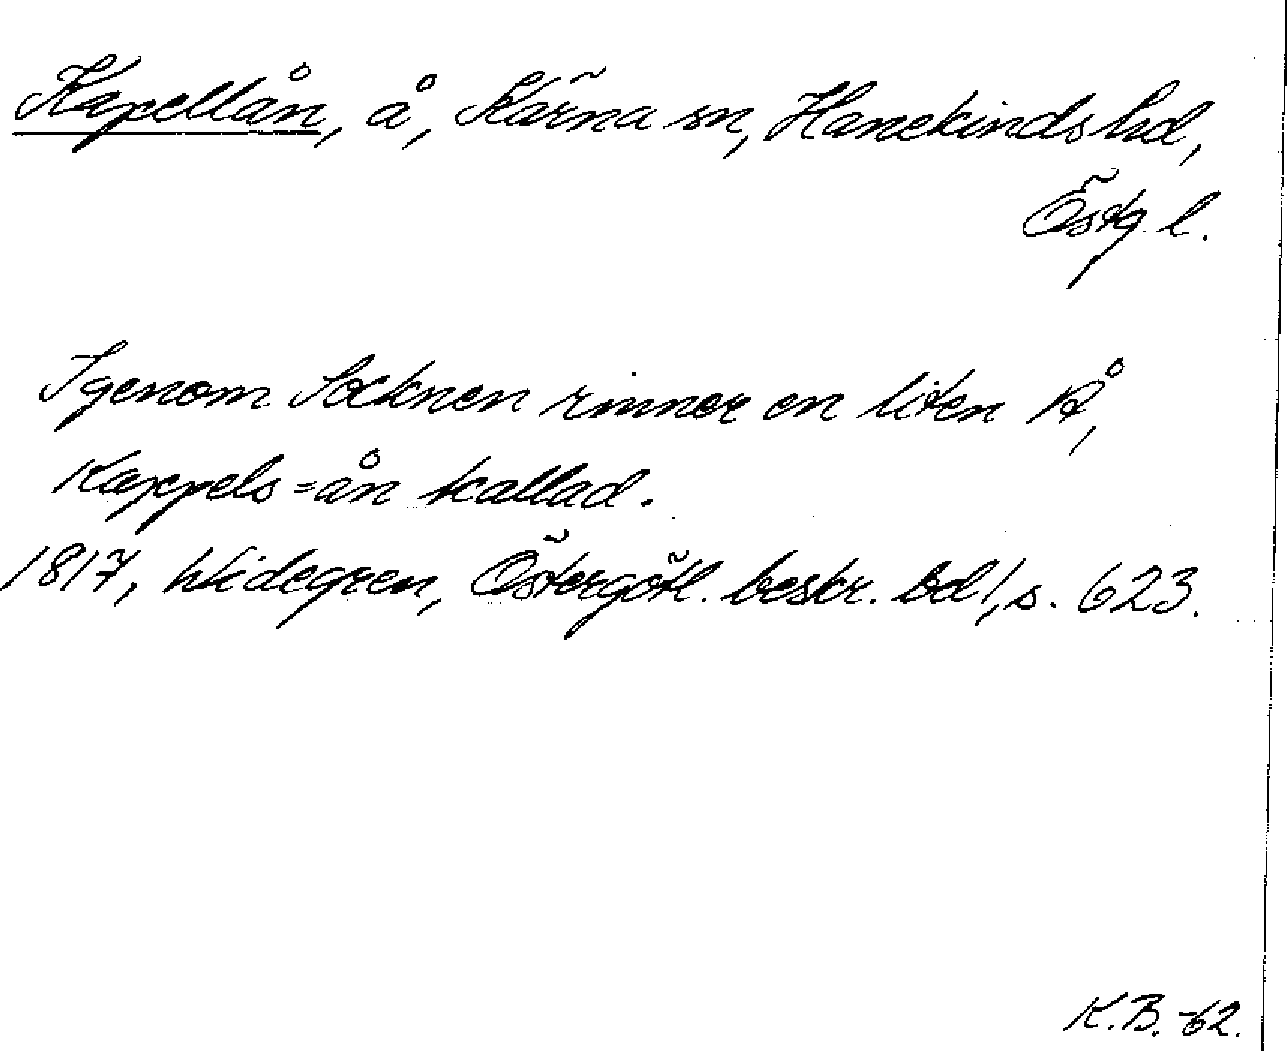 Kapellån, å, Kärna sn, Hanekinds hd,
Östg. l.
Igenom Socknen rinner en liten Å,
Kappels=ån kallad.
1817, Widegren, Östergötl. beskr. bd 1, s. 623.
K.B. -62.